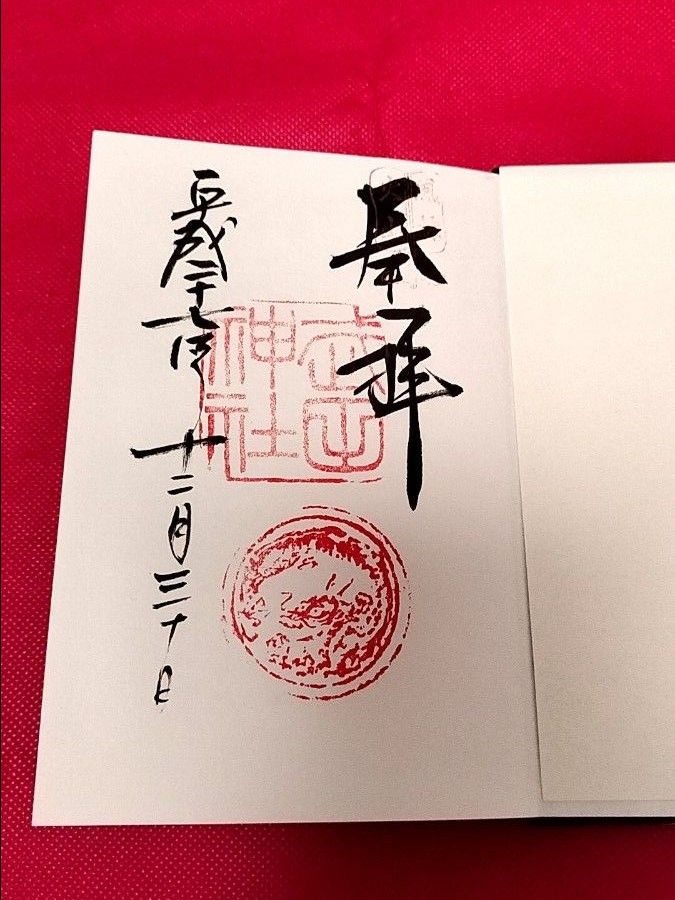 奉拝
神社
平成二十七年 十二月三十日